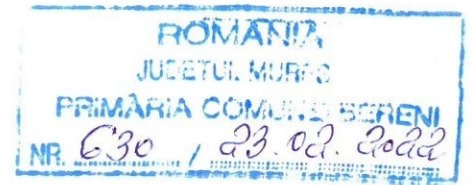 ROMÂNIA
JUDEȚUL MUREȘ
PRIMĂRIA COMUNEI BERENI
NR. 630 / 23.02.2022